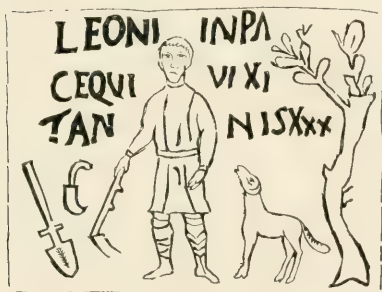 LEONI INPA
CEQUI VIXI
TAN NISXXX